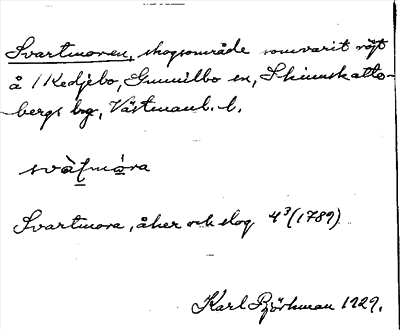 Svartmoren, skogsområde som varit röjt
å 1 Kedjebo, Gunnilbo sn, Skinnskatte-
bergs bg, Västmanl. l.
svàṭmóra
Svartmora, åker och skog 4³ (1789)
Karl Björkman 1929.